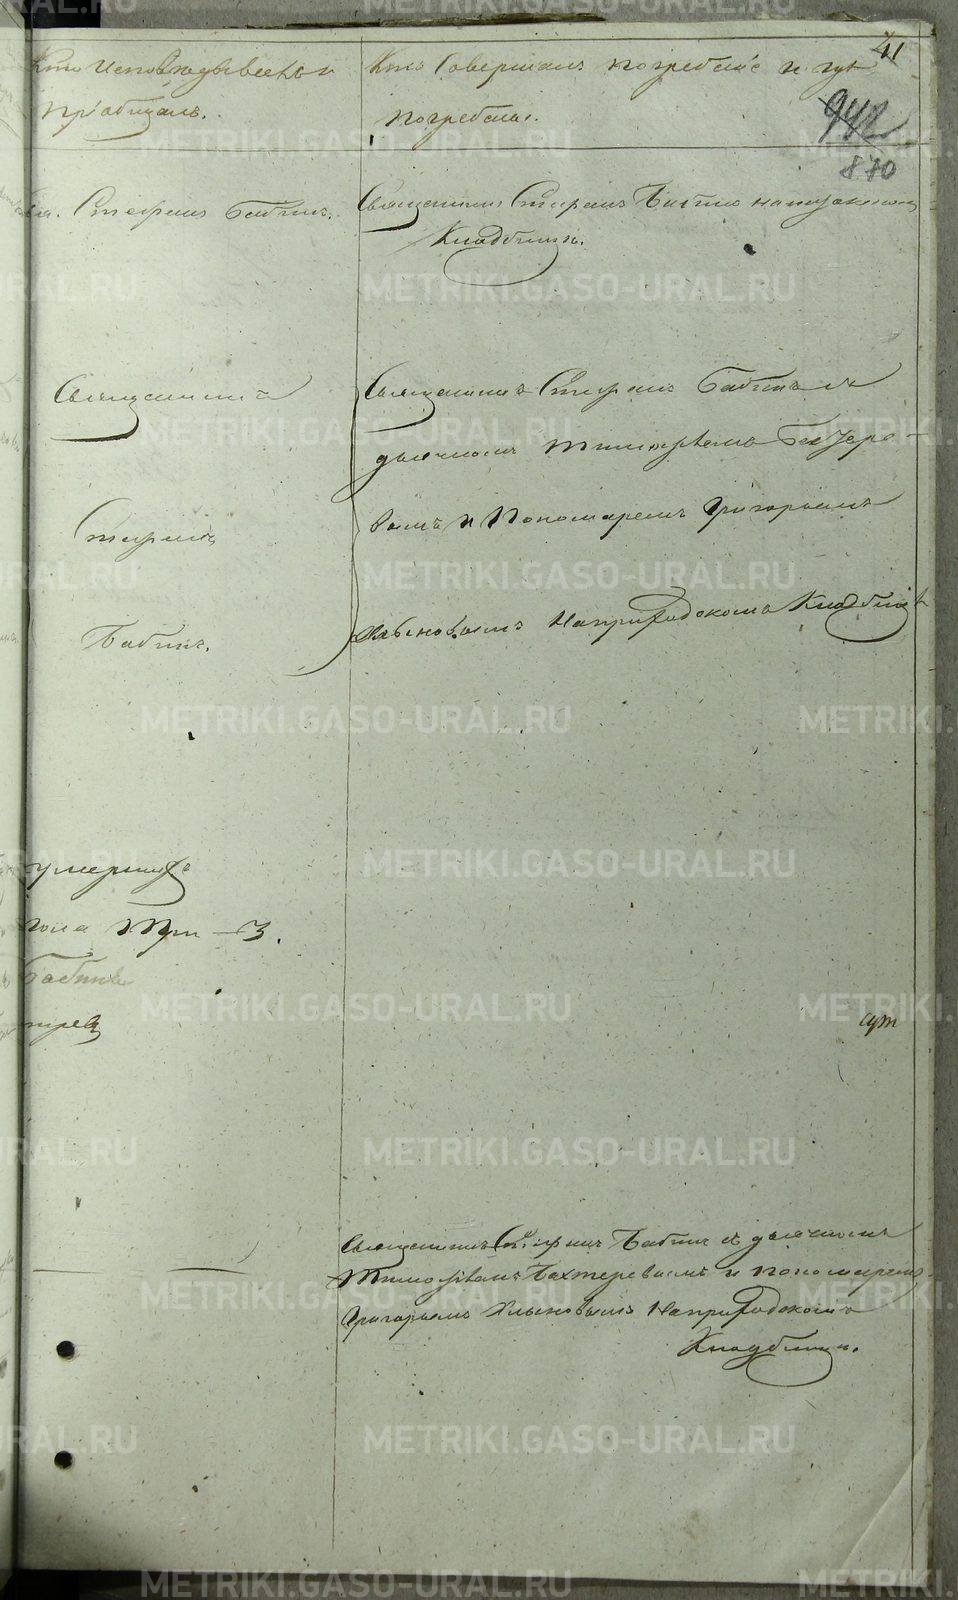 41
Кто Исповѣдывалъ и
Приобщалъ.
Кто Совершалъ погребеніе и гдѣ
погребены.
942
870
Стефанъ Бабинъ.
Священникъ Стефанъ Бабинъ на
Кладбищѣ.
Священникъ
Стефанъ
Бабинъ.
Священникъ Стефанъ Бабинъ съ
дьячкомъ Тимофѣемъ Бехтере-
вымъ и Пономаремъ Григорьемъ
Хлыновымъ На приходскомъ Кладбищѣ
умершихъ
пола Три — 3.
Бабинъ
сут
Священникъ Стефанъ Бабинъ съ дьячкомъ
Тимофѣемъ Бехтеревымъ и пономаремъ
Григорьемъ Хлыновымъ На приходскомъ
Кладбищѣ.
METRIKI.GASO-URAL.RU